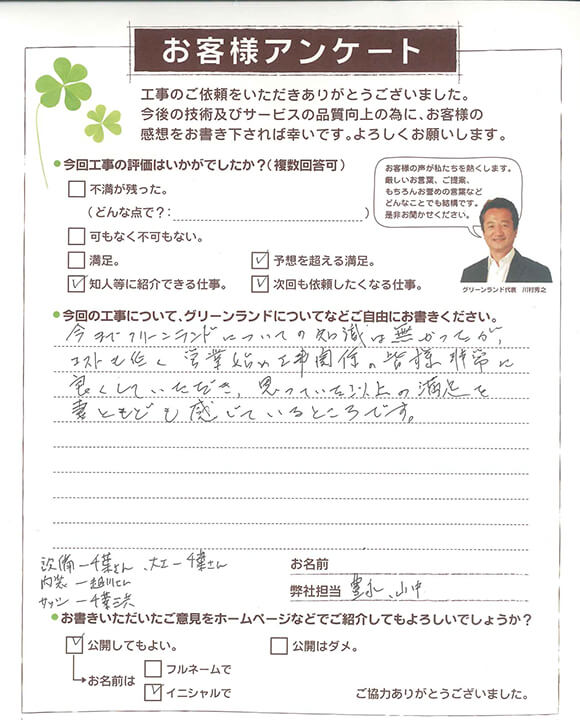 お客様アンケート
工事のご依頼をいただきありがとうございました。
今後の技術及びサービスの品質向上の為に、お客様の
感想をお書き下されば幸いです。よろしくお願いします。
●今回工事の評価はいかがでしたか？（複数回答可）
お客様の声が私たちを熱くします。
厳しいお言葉、ご提案、
もちろんお誉めの言葉など
どんなことでも結構です。
是非お聞かせください。
グリーンランド代表 川村秀之
不満が残った。
（どんな点で？：）
可もなく不可もない。
満足。 予想を超える満足。
知人等に紹介できる仕事。 次回も依頼したくなる仕事。
●今回の工事について、グリーンランドについてなどご自由にお書きください。
今までグリーンランドについての知識は無かったが、
コストも低く営業始め工事関係の皆様非常に
良くしていただき、思っていた以上の満足を
妻ともども感じているところです。
設備ー千葉さん、大工ー千葉さん
内装ー
サッシー千葉
お名前
弊社担当 豊永、山中
●お書きいただいたご意見をホームページなどでご紹介してもよろしいでしょうか？
公開してもよい。 公開はダメ。
お名前は フルネームで
イニシャルで
ご協力ありがとうございました。